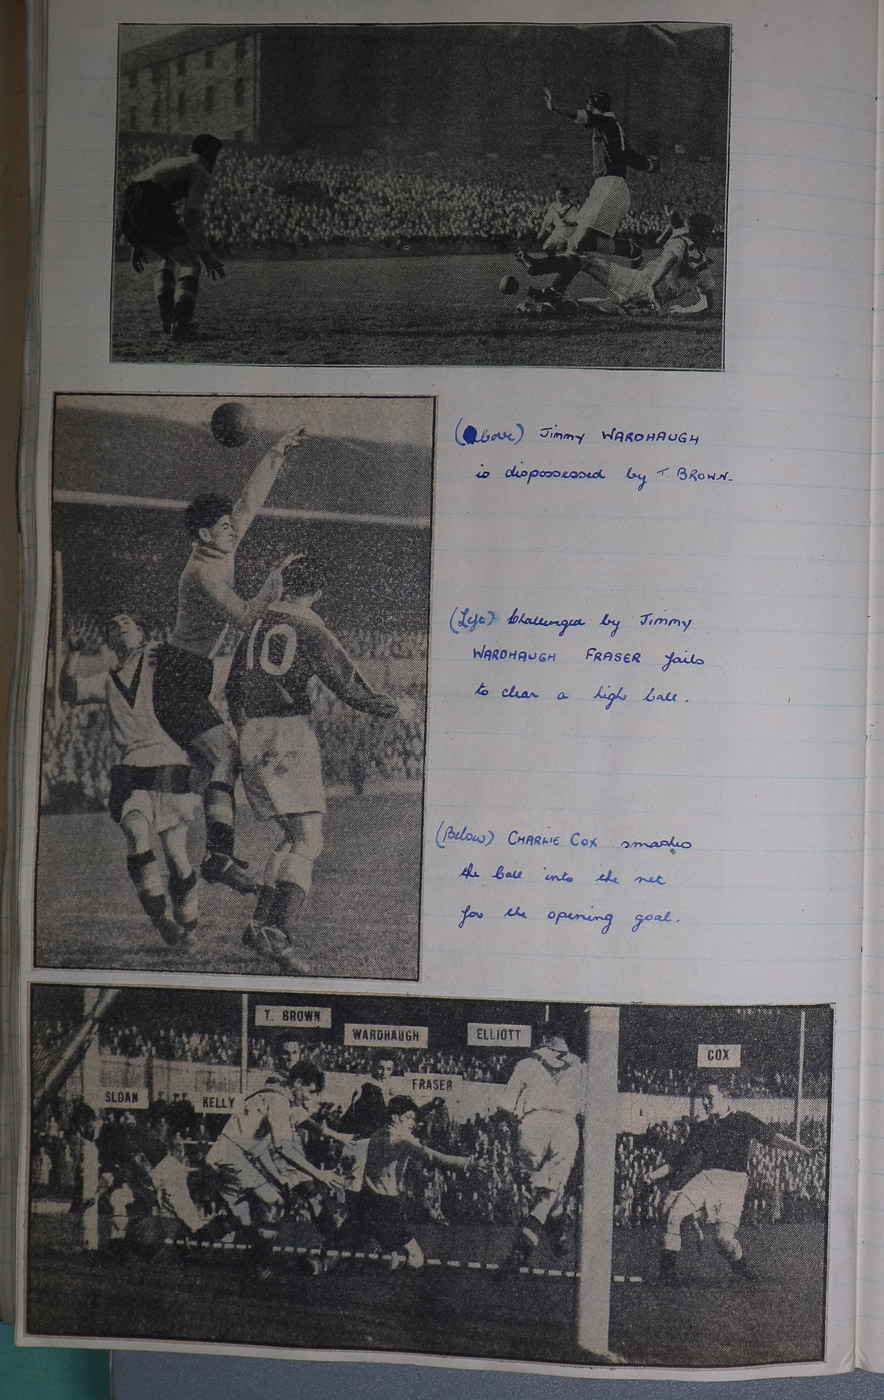 (Above) Jimmy WARDHAUGH
is dispossessed by T. BROWN.
10
(Left) Challenged by Jimmy
WARDHAUGH FRASER fails
to clear a high ball.
(Below) CHARLIE COX smashes
the ball into the net
for the opening goal.
T. BROWN
WARDHAUGH
ELLIOTT
COX
FRASER
SLOAN
KELLY